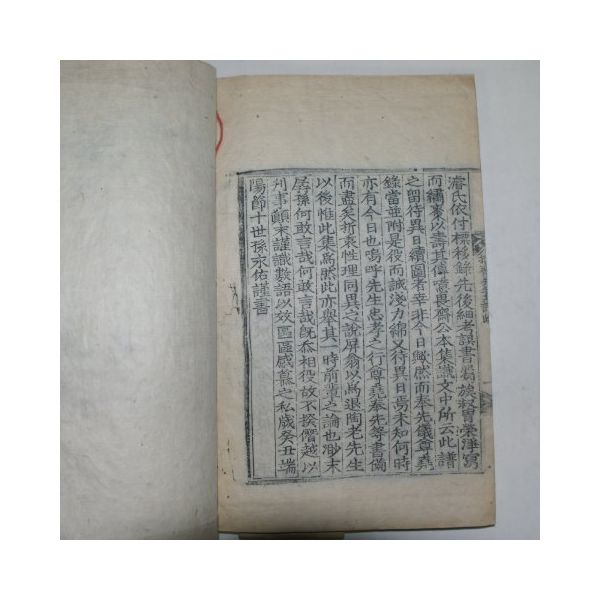 濬氏依付標移錄先後細考誤書焉族叔胄榮淨寫
而繡棗以壽其傳嗚畏齋公本集識文中所云此譜
之留待異日續圖者幸非今日歟然而奉先儀尊堯
錄當並附是役而誠淺力綿又待異日焉未知何時
亦有今日也嗚呼先生忠孝之行尊堯奉先等書備
而盡矣折衷性理同異之說屏翁以爲退陶老先生
以後惟此集爲然此亦擧其一時前輩之論也眇末
孱孫何敢言哉何敢言哉旣忝相役故不揆僭越以
刋事顚末謹識數語以效區區感慕之私歲癸丑端
陽節十世孫永佑謹書